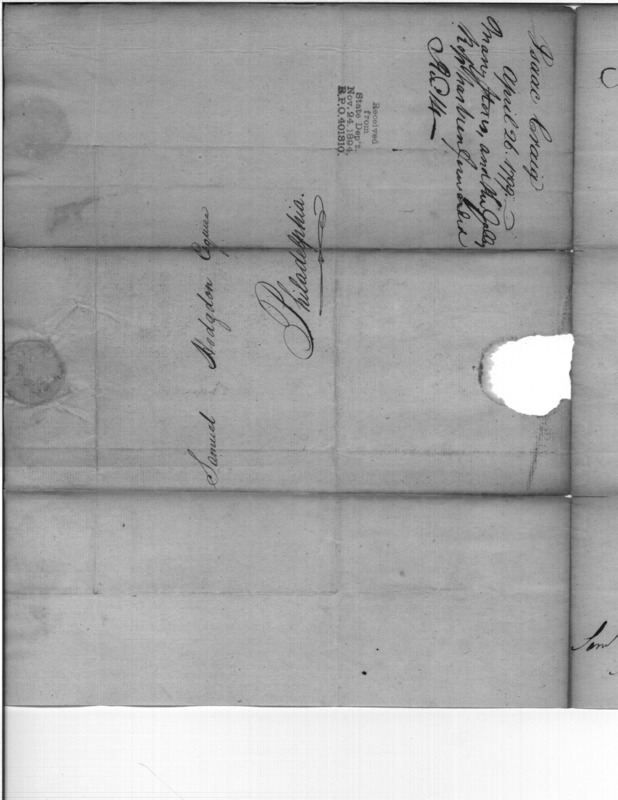 Isaac Craig
April 26. 1799
Many Items, and the Galley
Rept has been forwarded
No 14
Received
from
State Dep't.
Nov. 24 1894.
R.P.O. 401810.
Samuel Hodgdon Esquire
Philadelphia.
Sam